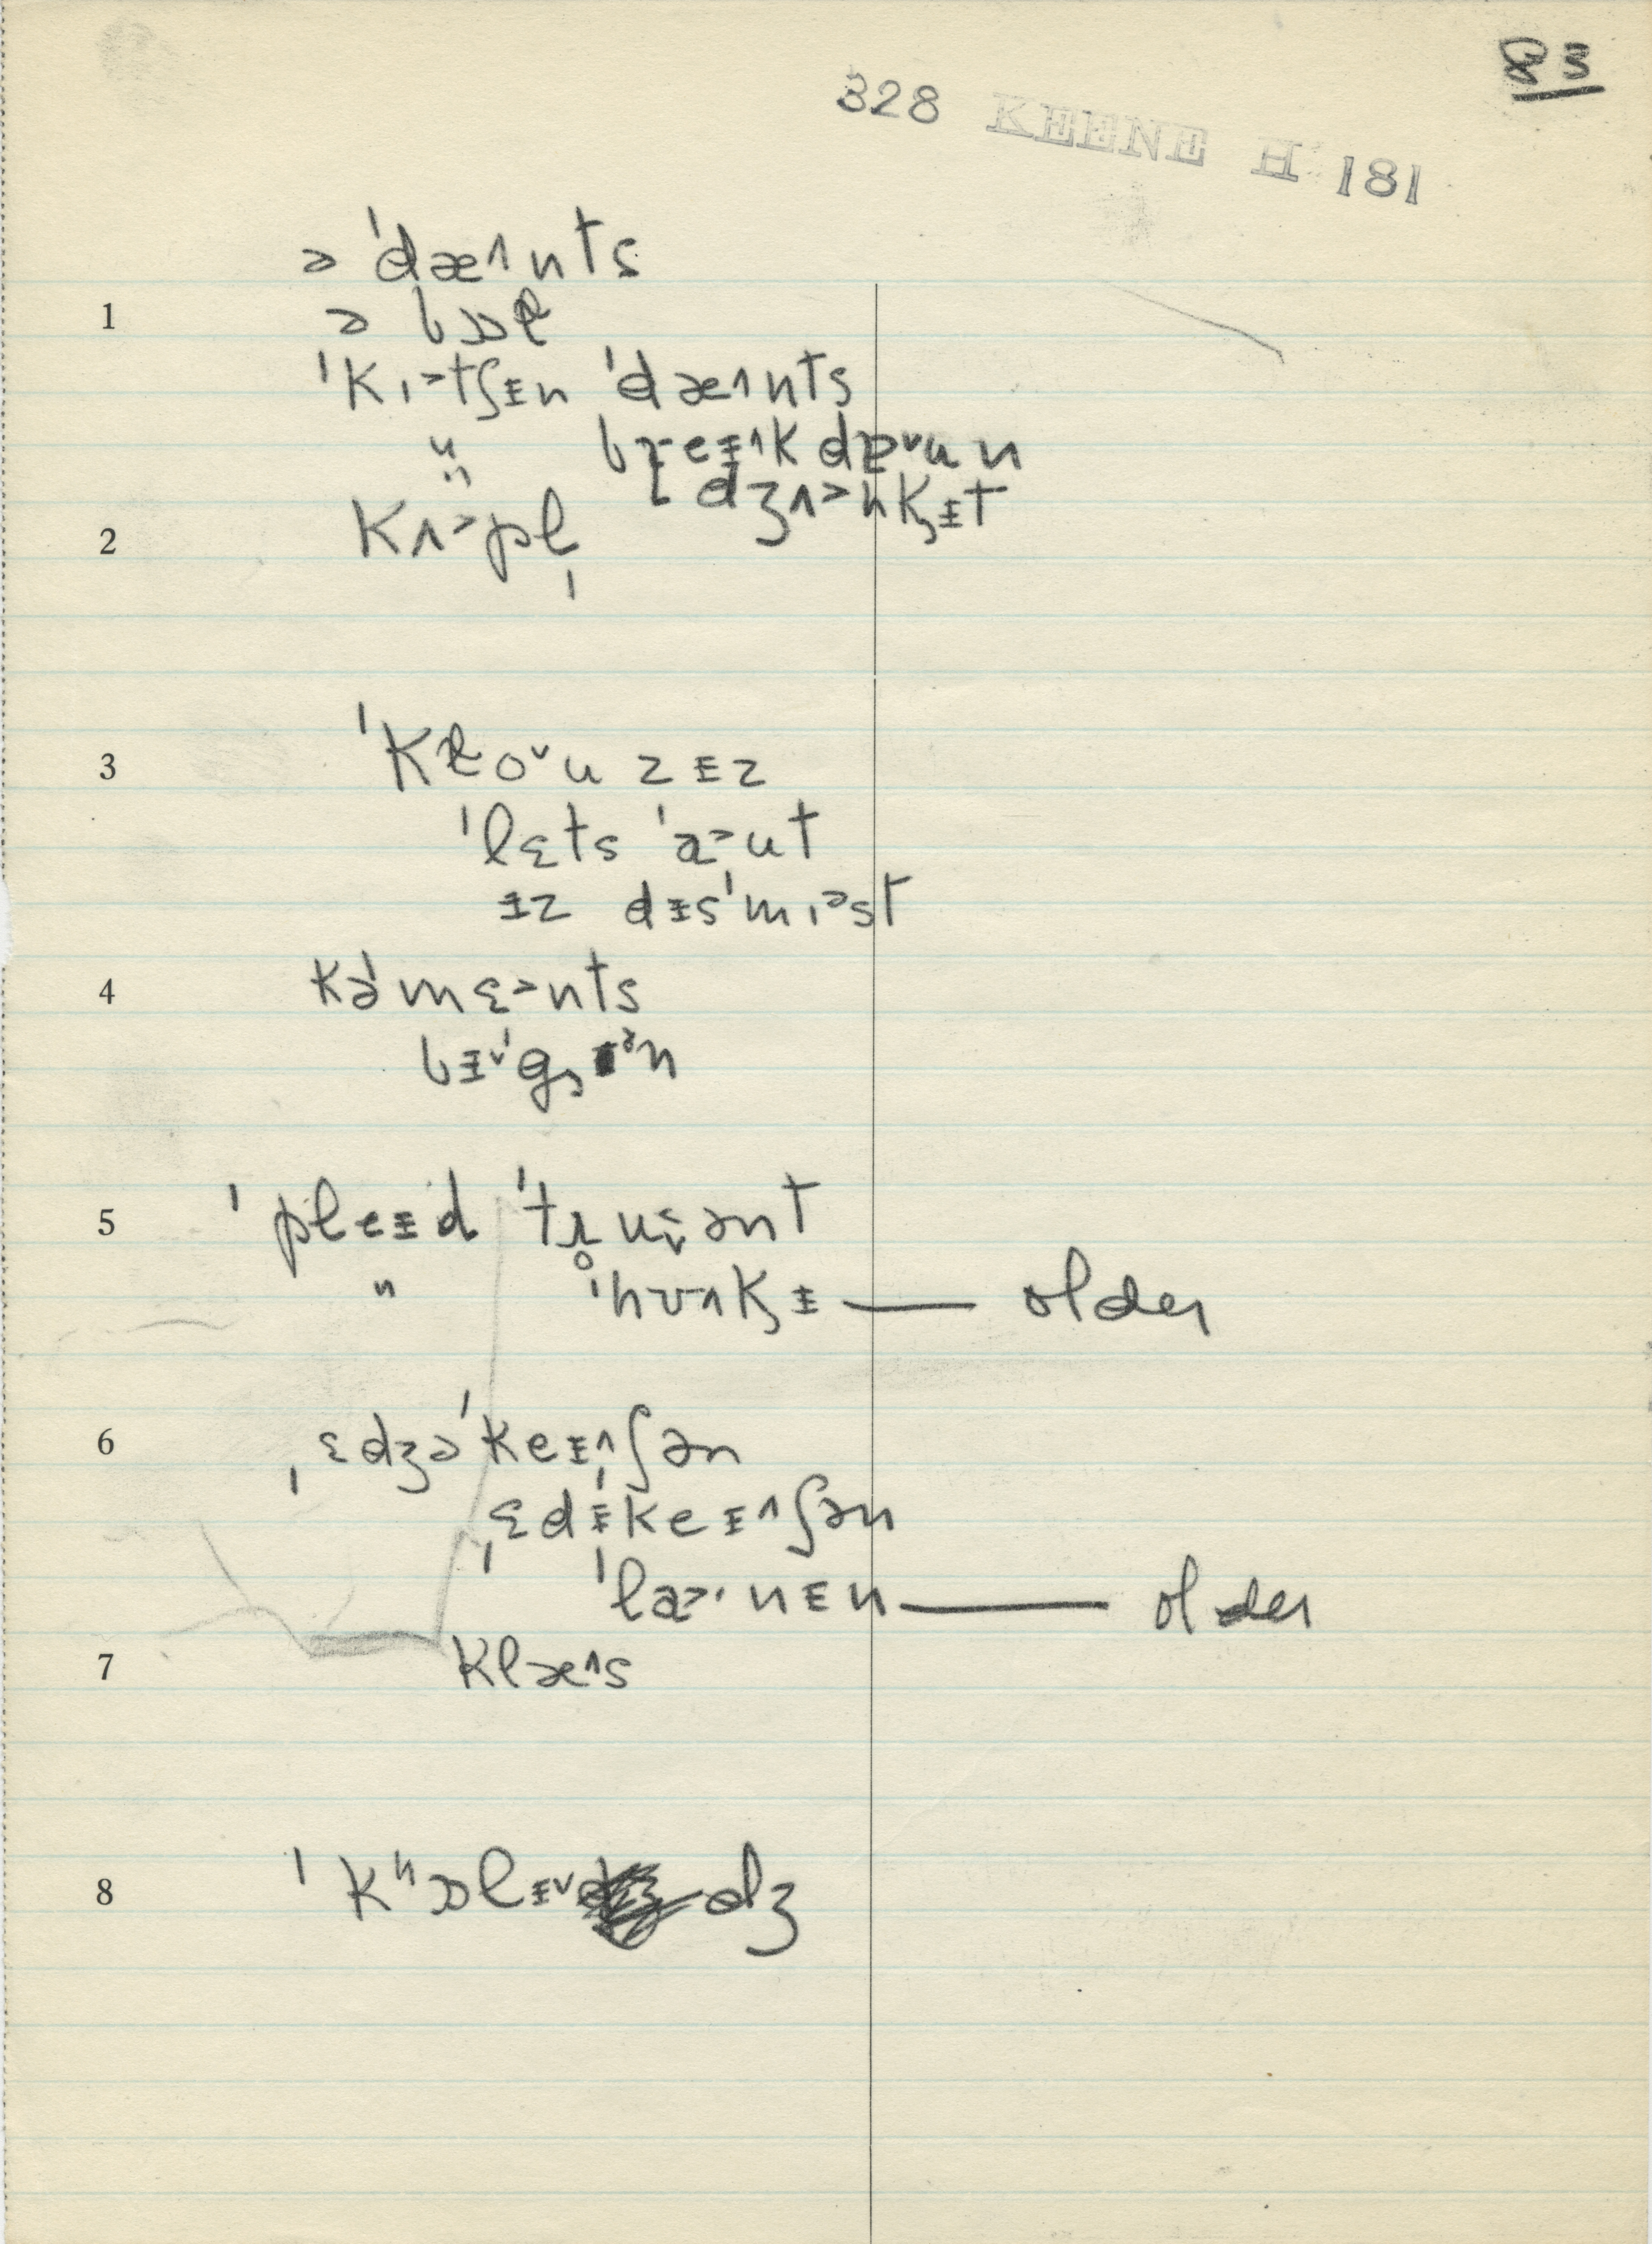 83
328 KEENE H 181
ə ˈdæ˄nts
1 ə bɒɫ
ˈkɪ˃tʃɪ̵n ˈdæ˄nts
" breɪ̵˄kdɐ˅un
" dʒʌ˃nkʒɪ̵t
2 kʌ˃pl̩
3 ˈkɫo˅uzɪ̵z
ˈlɛts ˈa˃ut
ɪ̵z dɪ̵sˈmɪ˃st
4 kəˈmɛ˃nts
5 ˈpleɪ̵d ˈtɹ̥uɪ̬ənt
" ˈhʊ˄kʒɪ̵ — older
6 ˌɛdʒəˈkeɪ̵˄ʃən
ˌɛdɪ̵ˈkeɪ̵˄ʃən
ˈla˃·nɪ̵n — older
7 klæ˄s
8 ˈkʰɒlɪ̵˅dʒ